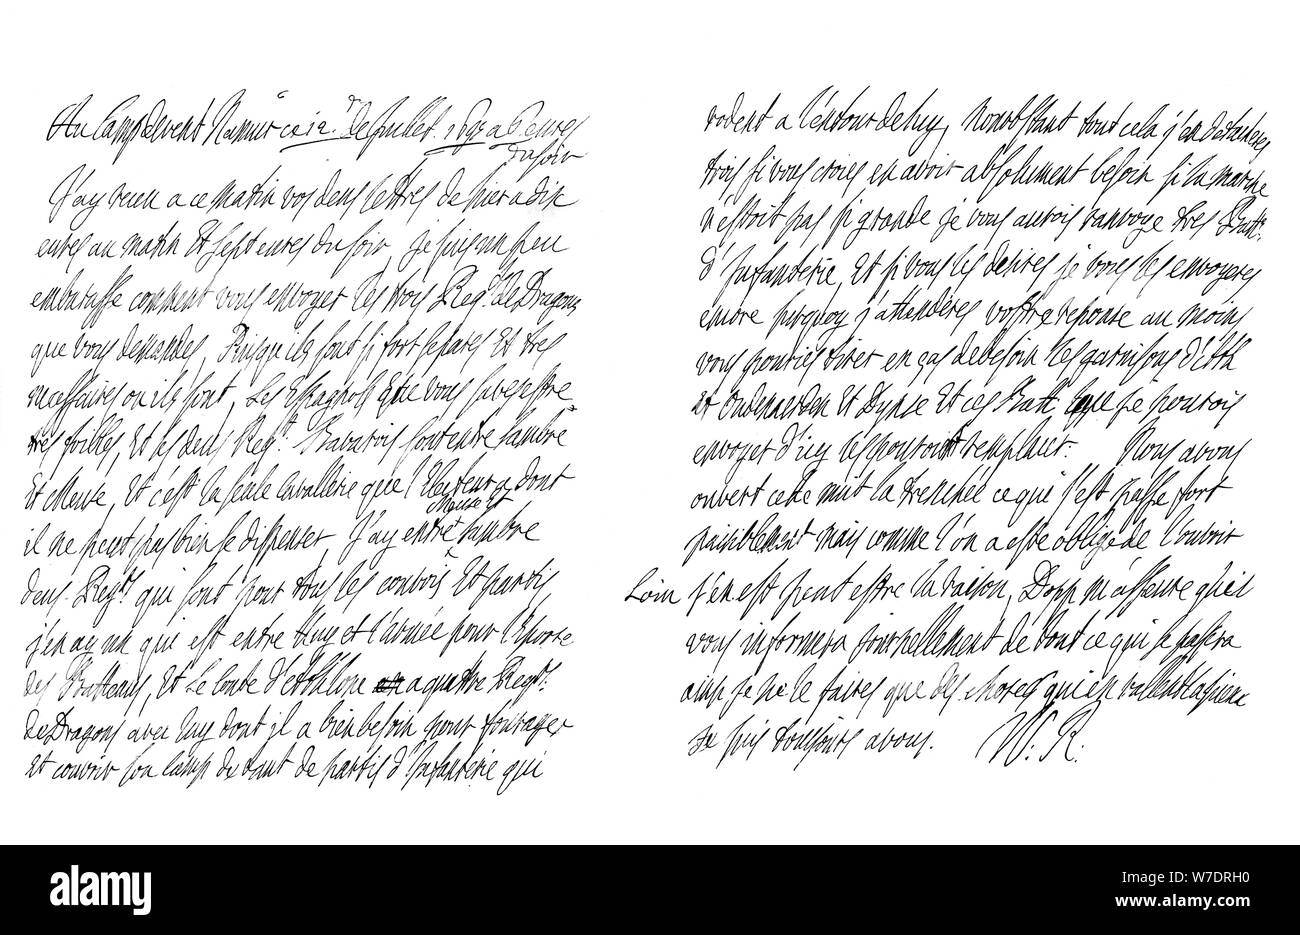 Au Camp devent Namur ce 12 de Juillet 1695 a 6 eures
du soir
J'ay receu a ce matin vos deus lettres de hier a dix
eures au matin et sept eures du soir, je suis un peu
embarasse comment vous envoyer les trois Regts de Dragons
que vous demandes, Puisqu'ils sont si fort separes et tres
necessaires ou ils sont, Les Espagnols que vous
tres foibles, et les deus Regts Bavarois sont entre Sambre
et Meuse, et c'est la seule Cavallerie que l'Electeur a dont
il ne peut pas bien se dispenser, J'ay entre Meuse et Sambre
deus Regts qui sont pour tous les convois et partis,
j'en ay un qui est entre Huy et l'armée pour l'Escorte
des Batteaus, et le Conte d'Athlone a quattre Regts
de Dragons avec luy dont il a bien besoin pour fourager
et couvrir son Camp du tant de partis d'Infanterie qui
rodent a l'entour de luy, Nonobstant tout cela j'en detacheres
trois si vous croies en avoir absolument besoin si la marche
n'estoit pas si grande je vous aurois ranvoye tres Batts
d'Infanterie, et si vous les desires je vous les envoyeres
encore surquoy j'attenderes vostre reponse au moins
vous pouries tirer en cas de besoin les garnisons d'Ath
et Oudenarden et Dynse et ces Batts que je pourois
envoyer d'icy les pouroint remplacer. Nous avons
ouvert cette nuit la trenchée ce qui s'est passe fort
paisiblement mais comme l'on a este obligé de l'ouvrir
Loin s'en est peut estre la raison, Dopp m'asseure qu'il
vous informera journellement de tout ce qui se passera
ainsi je ne le faires que des choses qui en vallent la piene
Je suis toujours a vous. W. R.
alamy
alamy
Image ID: W7DRH0
www.alamy.com